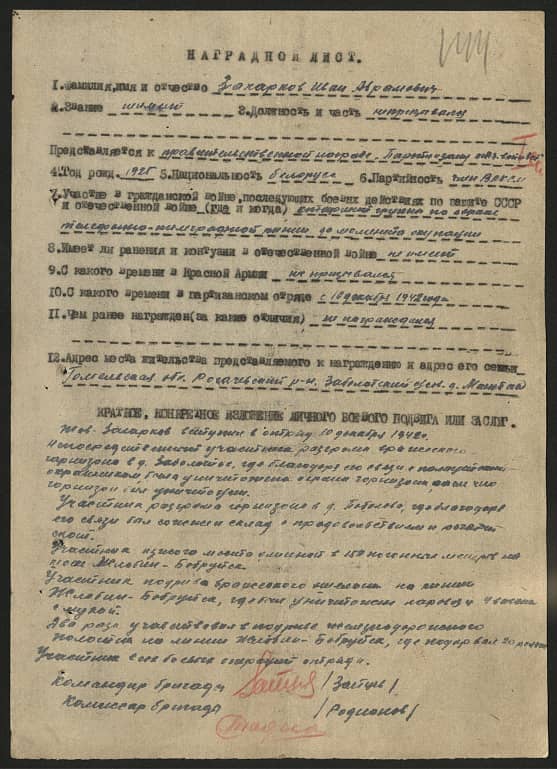 НАГРАДНОЙ ЛИСТ.
1.Фамилия,имя и отчество Захарков Иван Аврамович
2.Звание 3.Должность и часть
Представляется к правительственной награде. Партизану отеч. войны I
4.Год рожд. 1925 5.Национальность белорус 6.Партийность член ВЛКСМ
7.Участие в гражданской войне,последующих боевых действиях по защите СССР
и отечественной войне (где и когда) группы по охране
телефонно-телеграфной линии до момента окупации
8.Имеет ли ранения и контузии в отечественной войне не имеет
9.С какого времени в Красной Армии не призывался
10.С какого времени в партизанском отряде с 10 декабря 1942 года
11.Чем ранее награжден(за какие отличия) не награждался
12.Адрес места жительства представляемого к награждению и адрес его семьи
Гомельская обл. Рогачевский р-н, Заболотский с/сов. д.
КРАТКОЕ, КОНКРЕТНОЕ ИЗЛОЖЕНИЕ ЛИЧНОГО БОЕВОГО ПОДВИГА ИЛИ ЗАСЛУГ.
Тов. Захарков вступил в отряд 10 декабря 1942г.
Непосредственный участник разгрома вражеского
гарнизона в д. Заболотое, где благодаря его связи с полицейским
охранником была уничтожена охрана гарнизона, а
гарнизон был уничтожен.
Участник разгрома гарнизона в д. где благодаря
его связи был сожжен склад с продовольствием и
Участник моста длиной в 150 погонных метров на
шоссе Жлобин-Бобруйск.
Участник подрыва вражеского эшелона на линии
Жлобин-Бобруйск, где был уничтожен паровоз и 4 вагона
с мукой.
Два раза участвовал в подрыве железнодорожного
полотна на линии Жлобин-Бобруйск, где подорвал 20 рельс
Участник всех боевых операций отряда.
Командир бригады /Зайцев/
Комиссар бригады /Родионов/